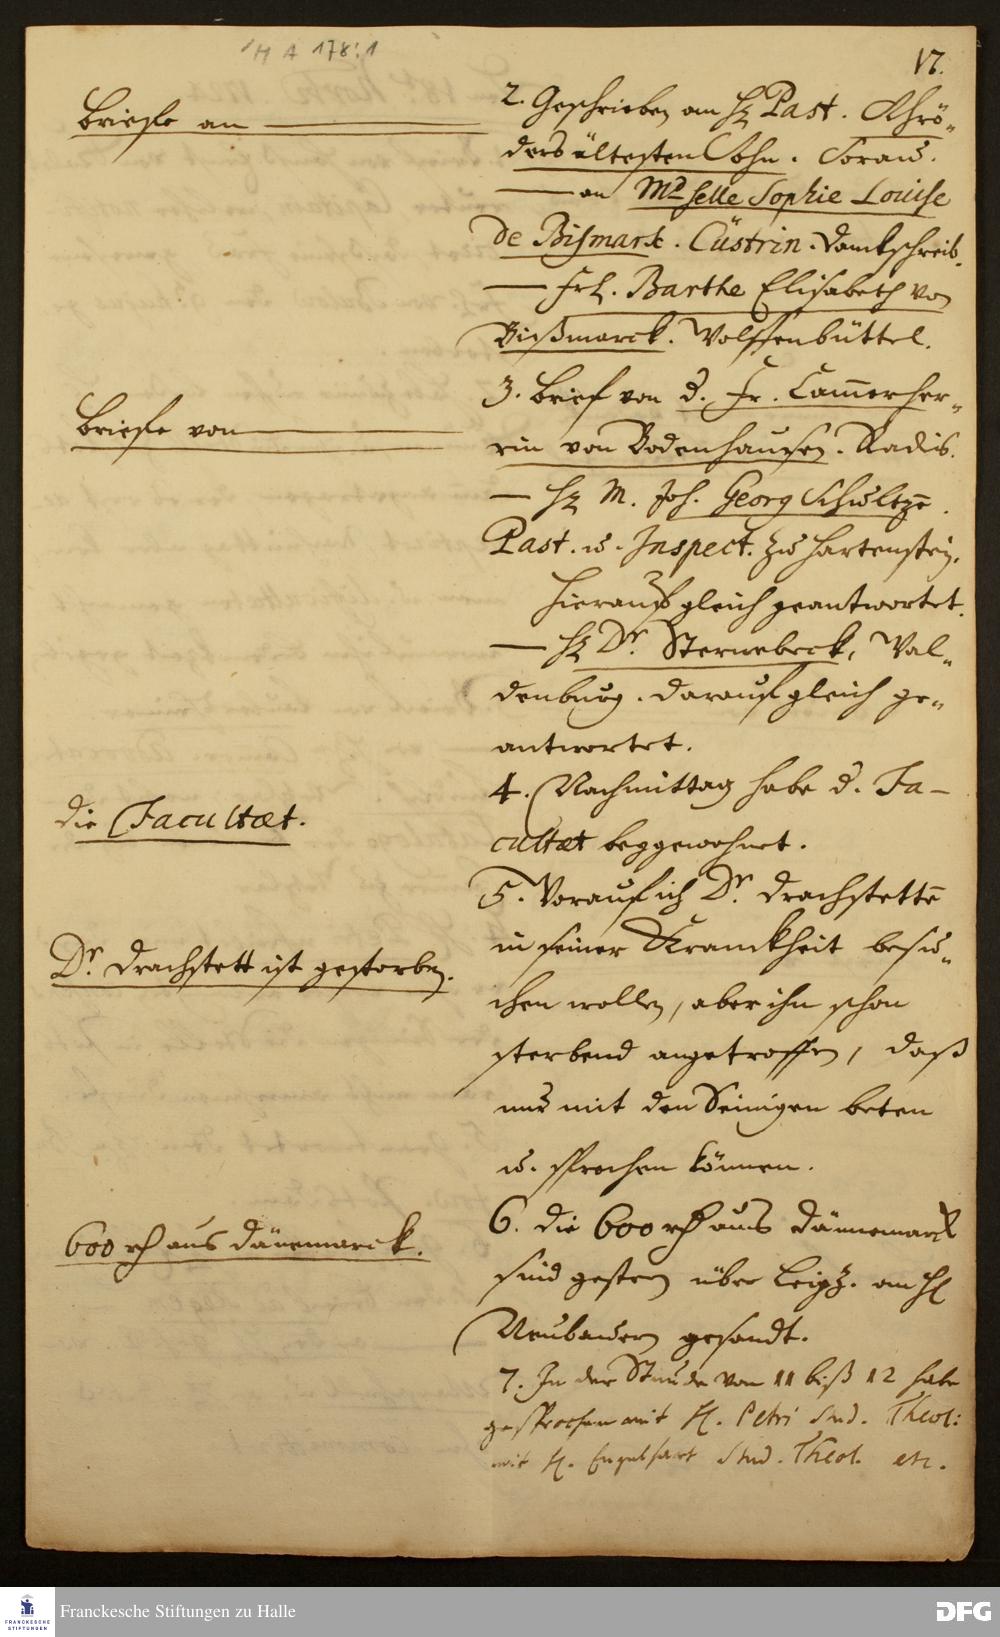 H A 178:1
17.
Briefe an
2. Geschrieben an H. Past. Schrö-
ders ältesten Sohn. Sorau.
— an Madselle Sophie Louise
de Bismark. Cüstrin. Danckschreib.
— Frl. Barthe Elisabeth von
Bißmarck. Wolffenbüttel.
Briefe von
3. Brief von d. Fr. Cammerher-
rin von Bodenhausen. Radis.
— H. M. Joh. Georg Schultzen.
Past. u. Inspect. zu Hartenstein.
Hierauf gleich geantwortet.
— H. Dr. Sternebeck, Wal-
denburg. Darauf gleich ge-
antwortet.
die Facultæt.
4. Nachmittag habe d. Fa-
cultæt beygewohnet.
5. Worauf ich Dr. Drachstetten
Dr. Drachstett ist gestorben.
in seiner Kranckheit besu-
chen wollen, aber ihn schon
sterbend angetroffen, daß
nur mit den Seinigen beten
u. sprechen können.
600 rh aus Dänemarck.
6. die 600 rh aus Dännemarck
sind gestern über Leipz. an H.
Neubauern gesandt.
7. In der Stunde von 11 biß 12 habe
gesprochen mit H. Petri Stud. Theol:
mit H. Engelhart Stud. Theol. etc.
FRANCKESCHE STIFTUNGEN
Franckesche Stiftungen zu Halle
DFG